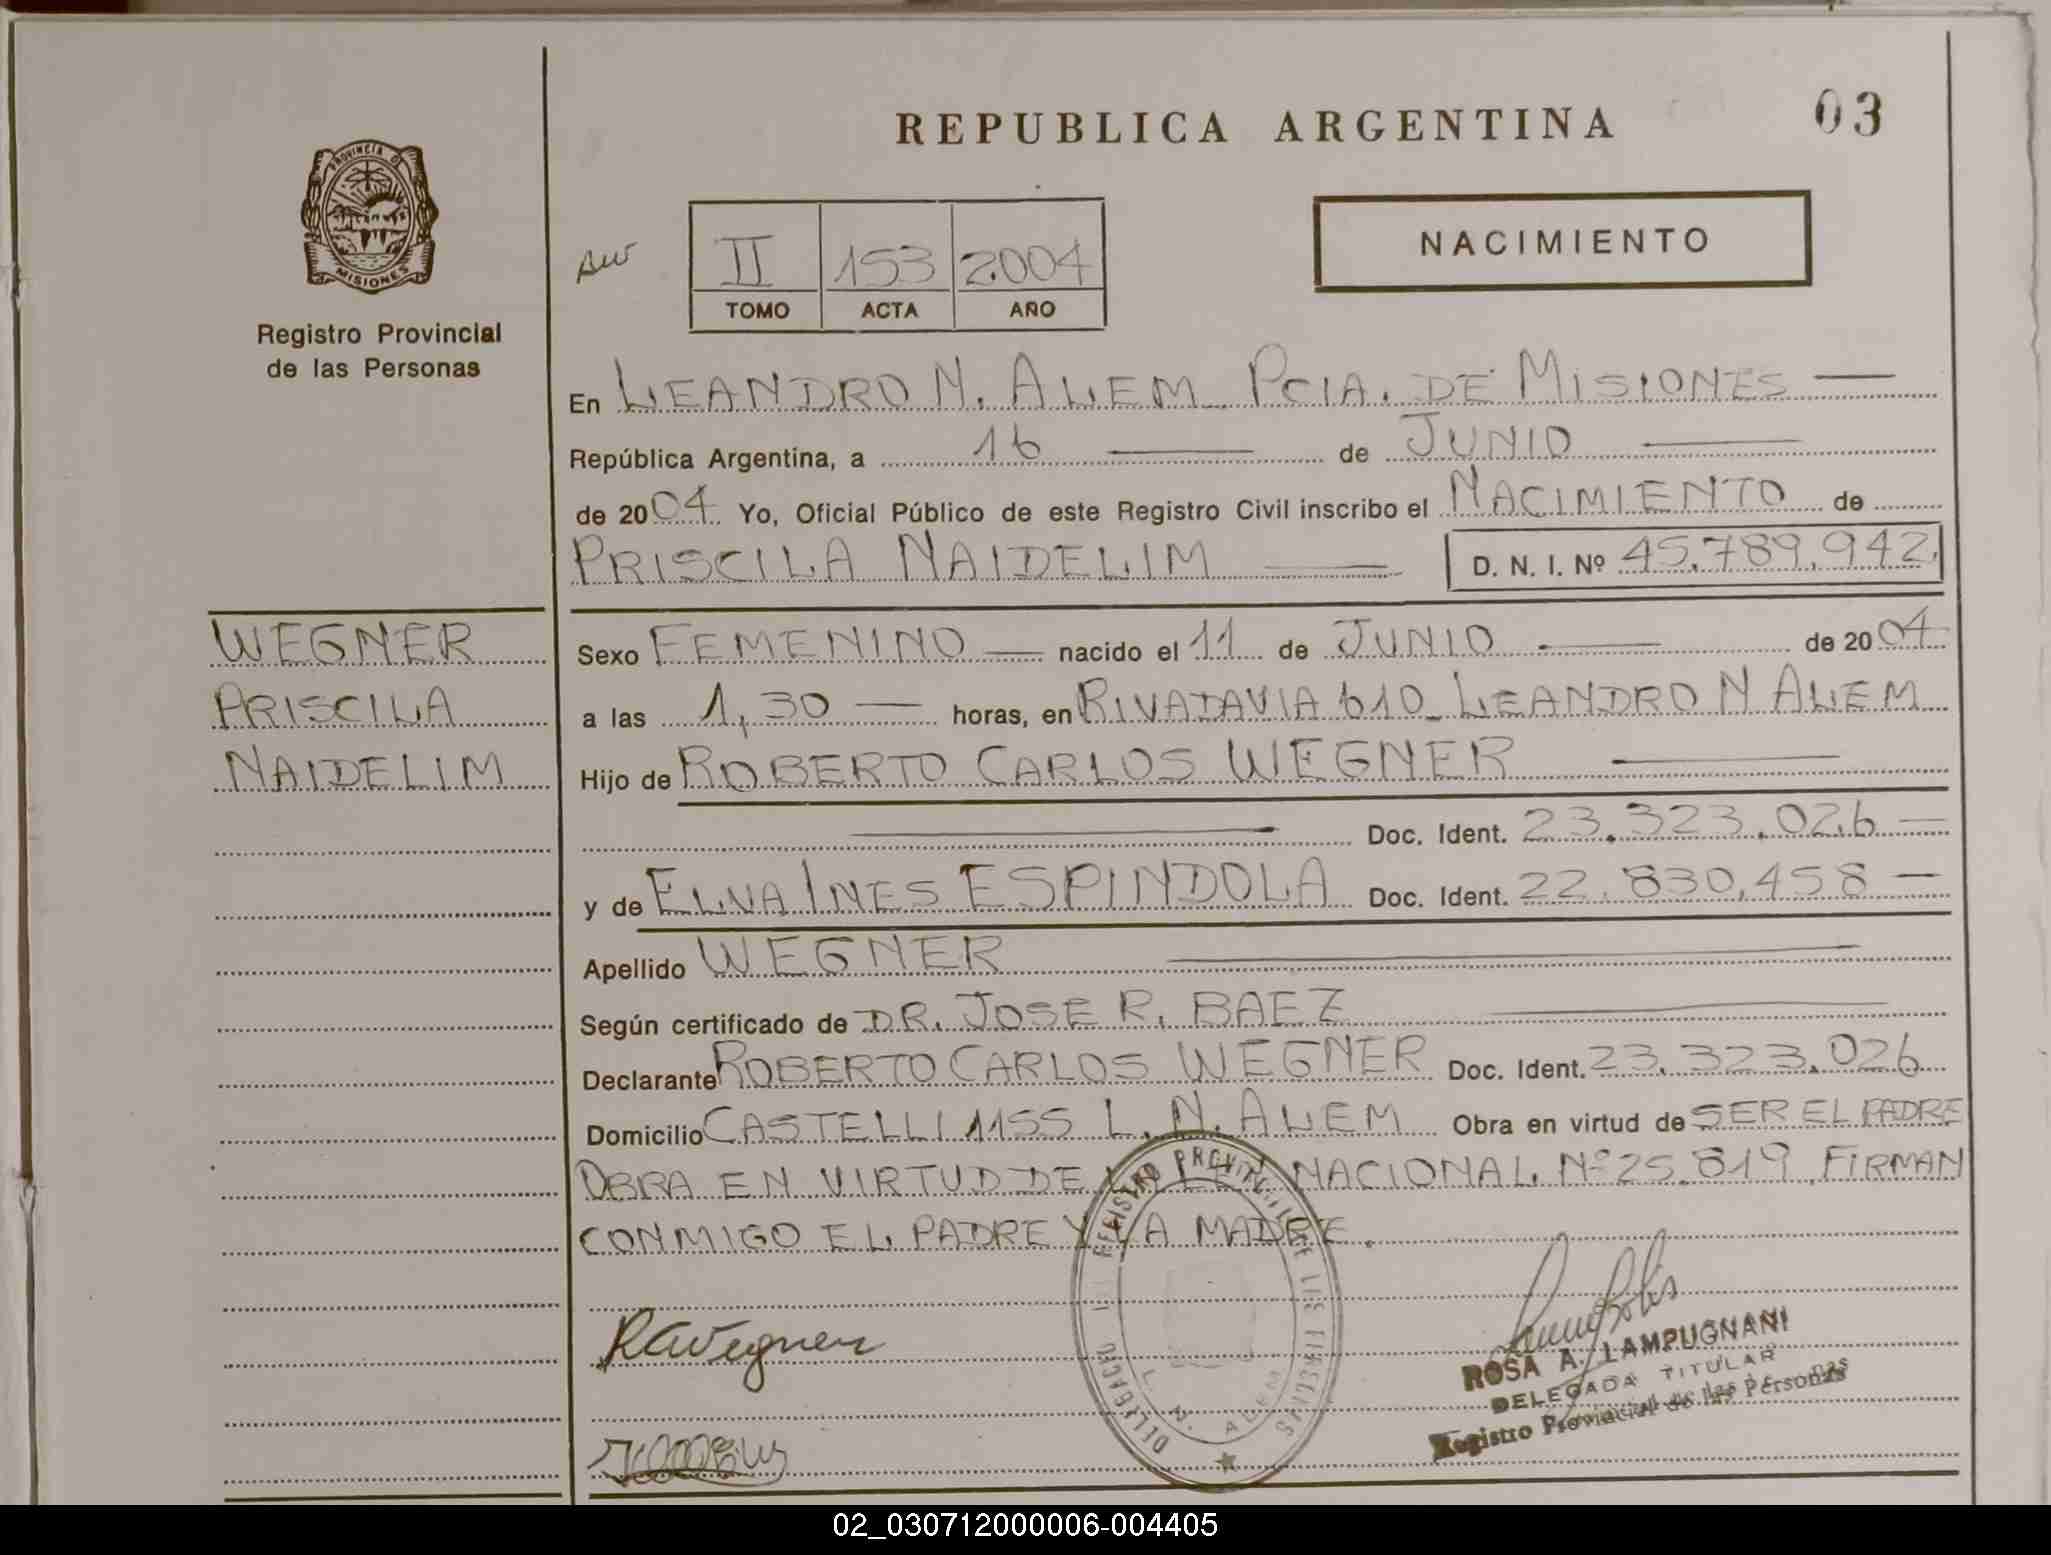 REPUBLICA ARGENTINA
03
PROVINCIA D
MISIONES
Registro Provincial
de las Personas
II 153 2004
TOMO ACTA AÑO
NACIMIENTO
En LEANDRO N. ALEM PCIA. DE MISIONES
República Argentina, a 16 de JUNIO
de 2004 Yo, Oficial Público de este Registro Civil inscribo el NACIMIENTO de
PRISCILA NAIDELIM D. N. I. Nº 45.789.942.
WEGNER
PRISCILA
NAIDELIM
Sexo FEMENINO nacido el 11 de JUNIO de 2004
a las 1,30 horas, en RIVADAVIA 610_ LEANDRO N ALEM
Hijo de ROBERTO CARLOS WEGNER
Doc. Ident. 23.323.026
y de ELVA INES ESPINDOLA Doc. Ident. 22.830.458
Apellido WEGNER
Según certificado de DR. JOSE R. BAEZ
Declarante ROBERTO CARLOS WEGNER Doc. Ident. 23.323.026
Domicilio CASTELLI 1155 L. N. ALEM Obra en virtud de SER EL PADRE
OBRA EN VIRTUD DE LEY NACIONAL Nº 25.819. FIRMAN
CONMIGO EL PADRE Y LA MADRE.
RCWegner
REGISTRO PROVINCIAL DE LAS PERSONAS
L. N. ALEM
ROSA A. LAMPUGNANI
DELEGADA TITULAR
Registro Provincial de las Personas
02_030712000006-004405